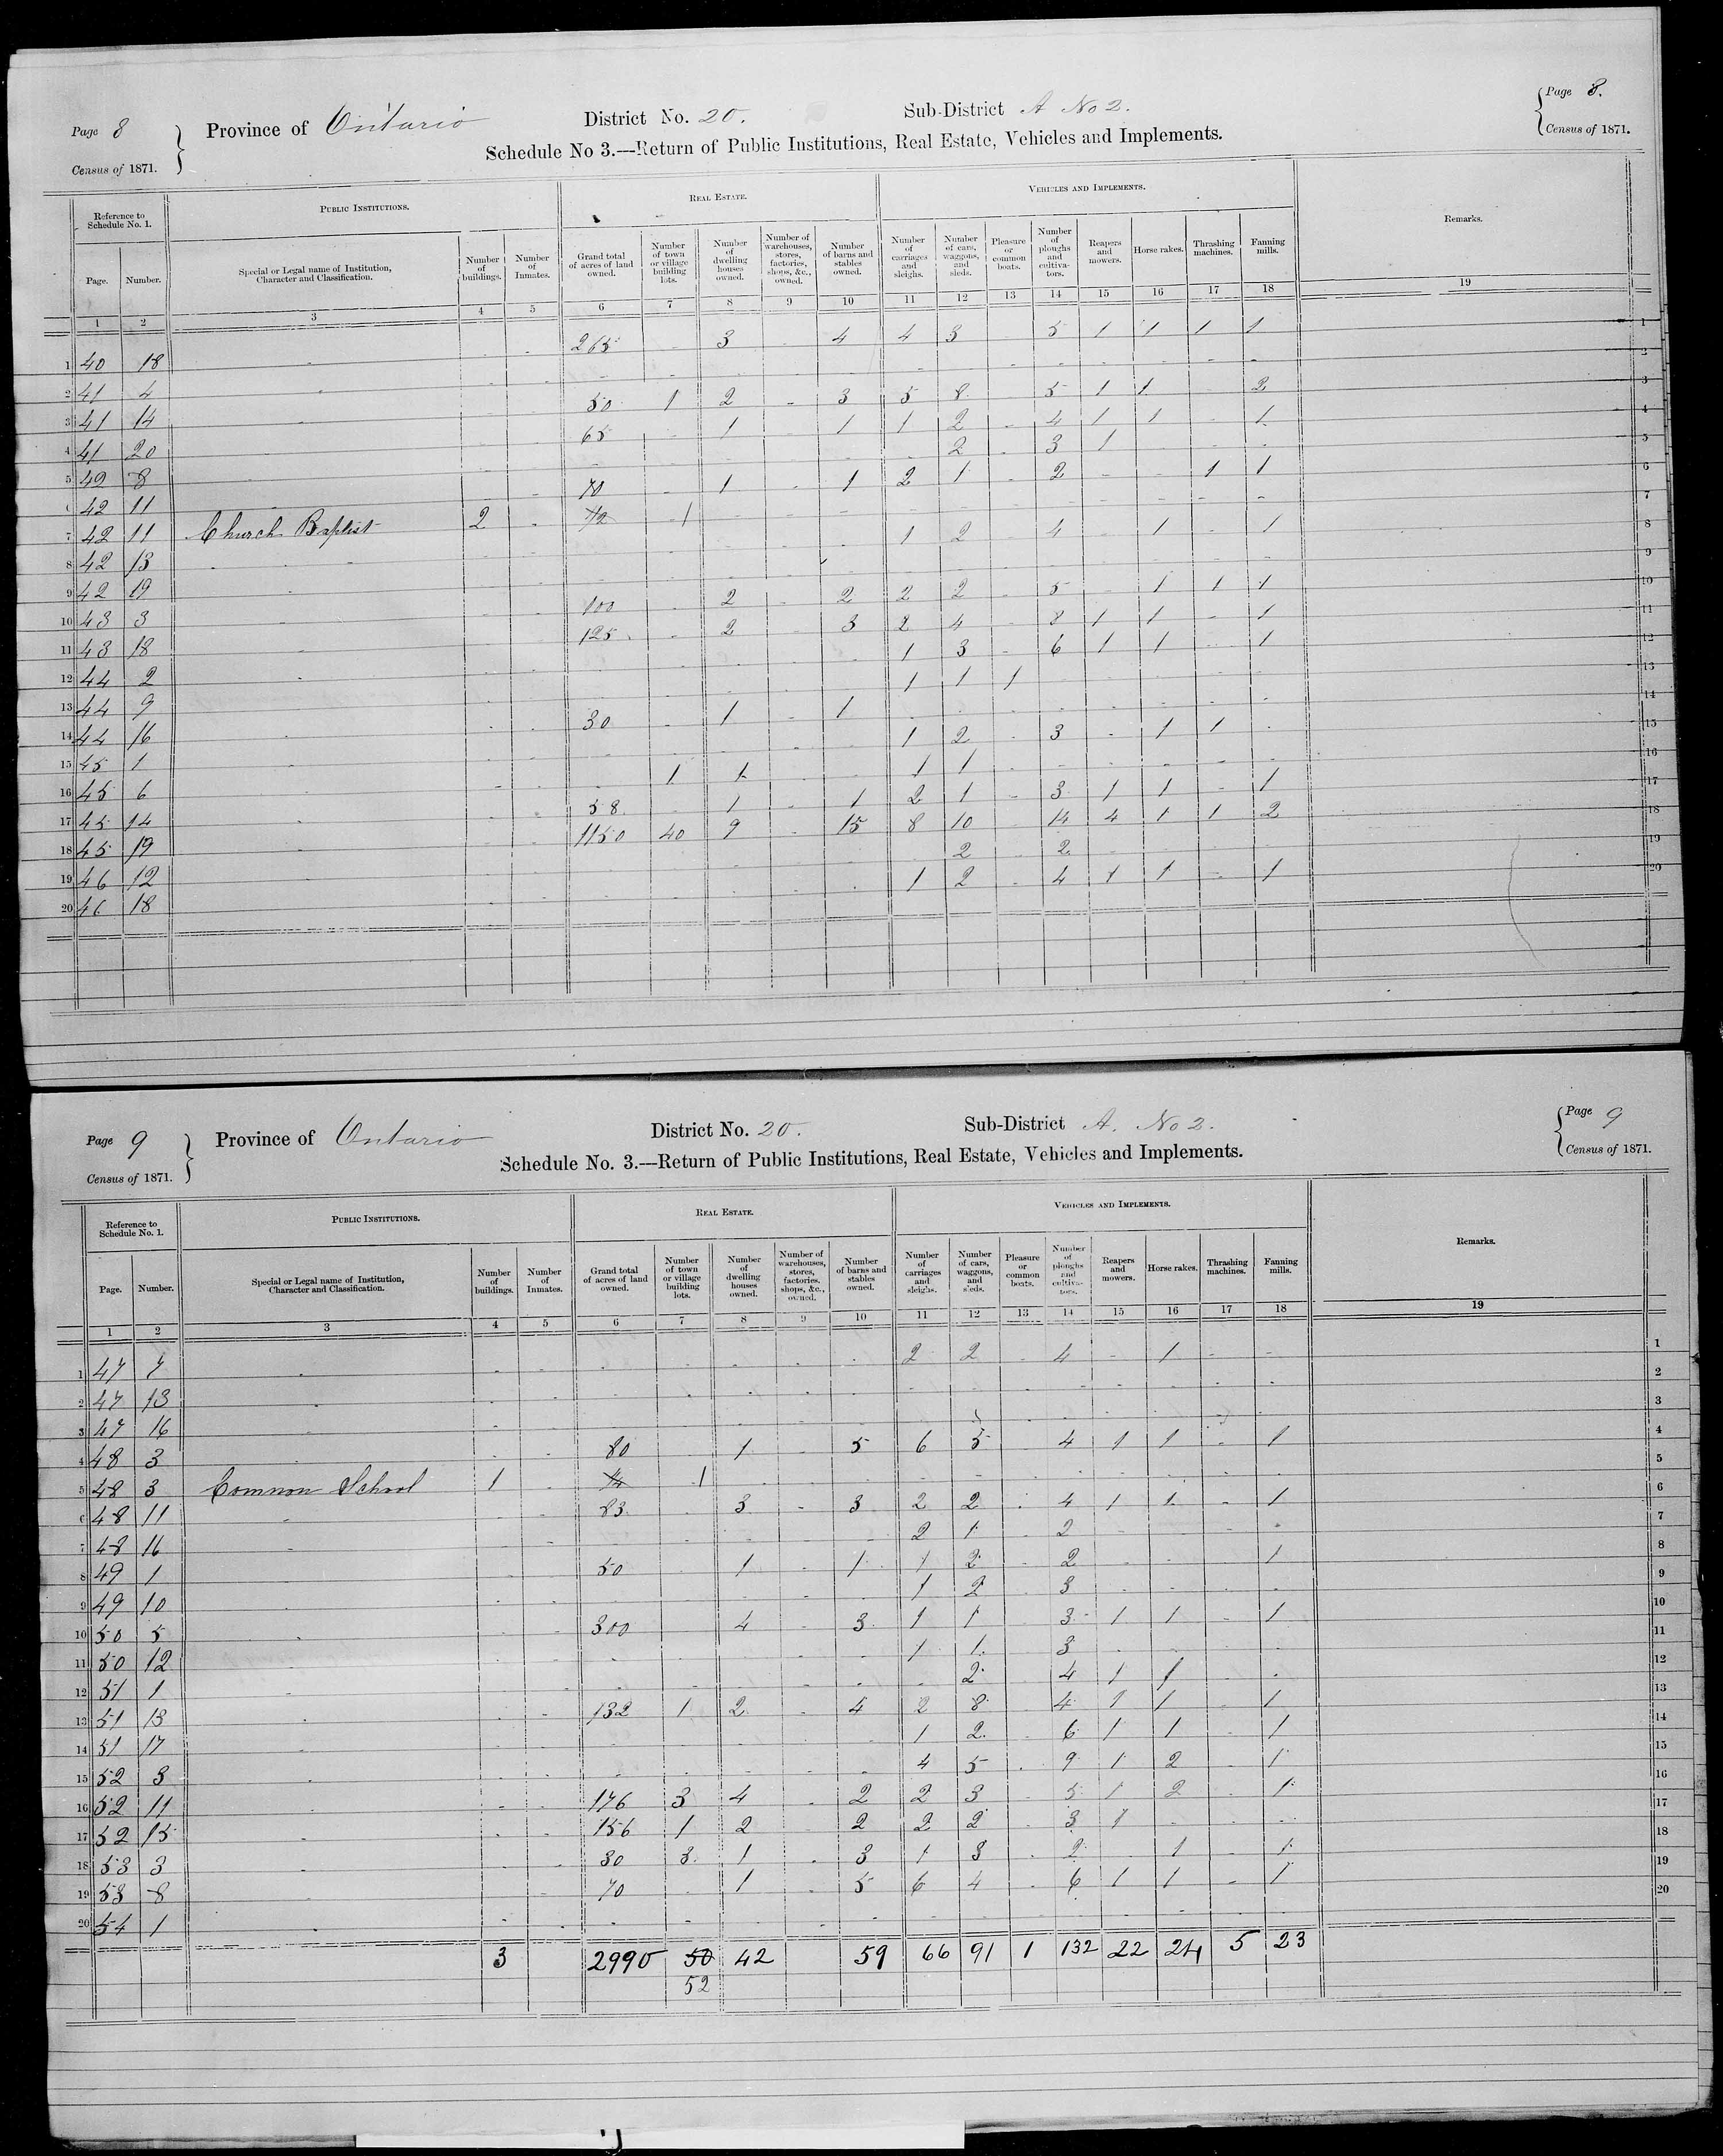 Page 8 Census of 1871. Province of Ontario District No. 20. Sub-District A No 2. Page 8. Census of 1871.
Schedule No 3.—Return of Public Institutions, Real Estate, Vehicles and Implements.
Reference to Schedule No. 1. Public Institutions. Real Estate. Vehicles and Implements. Remarks.
Page. Number. Special or Legal name of Institution, Character and Classification. Number of buildings. Number of Inmates. Grand total of acres of land owned. Number of town or village building lots. Number of dwelling houses owned. Number of warehouses, stores, factories, shops, &c., owned. Number of barns and stables owned. Number of carriages and sleighs. Number of cars, waggons, and sleds. Pleasure or common boats. Number of ploughs and cultivators. Reapers and mowers. Horse rakes. Thrashing machines. Fanning mills.
1 2 3 4 5 6 7 8 9 10 11 12 13 14 15 16 17 18 19
1 40 18 - - - 265 - 3 - 4 4 3 - 5 1 1 1 1 1
2 41 4 - - - - - - - - - - - - - - - - 2
3 41 14 - - - 50 1 2 - 3 5 8 5 1 1 2 3
4 41 20 - - - 65 - 1 1 1 2 - 4 1 1 1 4
5 42 8 - - - - - - - - - 2 - 3 1 - - - 5
6 42 11 - - 70 - 1 - 1 2 1 - 2 - - 1 1 6
7 42 11 Church Baptist 2 - 1/2 1 - - - - - - - - - - - 7
8 42 13 - - - 1 2 4 - 1 - 1 8
9 42 19 - - - - - - - - - - - - - 9
10 43 3 - - - 100 - 2 - 2 2 2 - 5 - 1 1 1 10
11 43 18 - - - 125 - 2 - 3 2 4 - 8 1 1 - 1 11
12 44 2 - - - 1 3 - 6 1 1 - 1 12
13 44 9 - - - 1 1 1 - - - - - 13
14 44 16 - - - 30 - 1 - 1 - - - - - - - 14
15 45 1 - - - 1 2 - 3 - 1 1 - 15
16 45 6 - - - 1 1 - - 1 1 - - - - - - 16
17 45 14 - - - 58 1 - 1 2 1 - 3 1 1 - 1 17
18 45 19 - - - 1150 40 9 - 15 8 10 14 4 1 1 2 18
19 46 12 - - - 2 2 - - - - 19
20 46 18 - - - 1 2 - 4 1 1 - 1 20
Page 9 Census of 1871. Province of Ontario District No. 20. Sub-District A. No 2. Page 9 Census of 1871.
Schedule No. 3.—Return of Public Institutions, Real Estate, Vehicles and Implements.
Reference to Schedule No. 1. Public Institutions. Real Estate. Vehicles and Implements. Remarks.
Page. Number. Special or Legal name of Institution, Character and Classification. Number of buildings. Number of Inmates. Grand total of acres of land owned. Number of town or village building lots. Number of dwelling houses owned. Number of warehouses, stores, factories, shops, &c., owned. Number of barns and stables owned. Number of carriages and sleighs. Number of cars, waggons, and sleds. Pleasure or common boats. Number of ploughs and cultivators. Reapers and mowers. Horse rakes. Thrashing machines. Fanning mills.
1 2 3 4 5 6 7 8 9 10 11 12 13 14 15 16 17 18 19
1 47 7 - - - - - - - - 2 2 - 4 - 1 - - 1
2 47 13 - - - - - - - - - - - - - - - - 2
3 47 16 - - - - - - - - - - - - - - - 3
4 48 3 - - - 80 1 - 5 6 5 - 4 1 1 - 1 4
5 48 3 Common School 1 - 1/4 1 - - - - - - - - - - 5
6 48 11 - - - 83 - 3 - 3 2 2 - 4 1 1 - 1 6
7 48 16 - - - - - - 2 1 - 2 - - - - 7
8 49 1 - 50 - 1 - 1 1 2 - 2 - - - 1 8
9 49 10 - - - - - - - - 1 2 - 3 - - - - 9
10 50 5 - - - 300 4 3 1 1 3 1 1 - 1 10
11 50 12 - - - - - - - - 1 1 3 - - - - 11
12 51 1 - - - - - - - - - 2 4 1 1 - - 12
13 51 13 - - - 132 1 2 - 4 2 8 4 1 1 - 1 13
14 51 17 - - - - - - - - 1 2 - 6 1 1 - 1 14
15 52 3 - - - - - - - - 4 5 - 9 1 2 - 1 15
16 52 11 - - - 176 3 4 - 2 2 3 - 5 1 2 - 1 16
17 52 15 - - - 156 1 2 - 2 2 2 - 3 1 - - - 17
18 53 3 - - - 30 3 1 - 3 1 3 - 2 - 1 - 1 18
19 53 8 - - 70 - 1 - 5 6 4 - 6 1 1 - 1 19
20 54 1 - - - - - - - - - - - - - - - - 20
3 2990 50 42 59 66 91 1 132 22 24 5 23
52